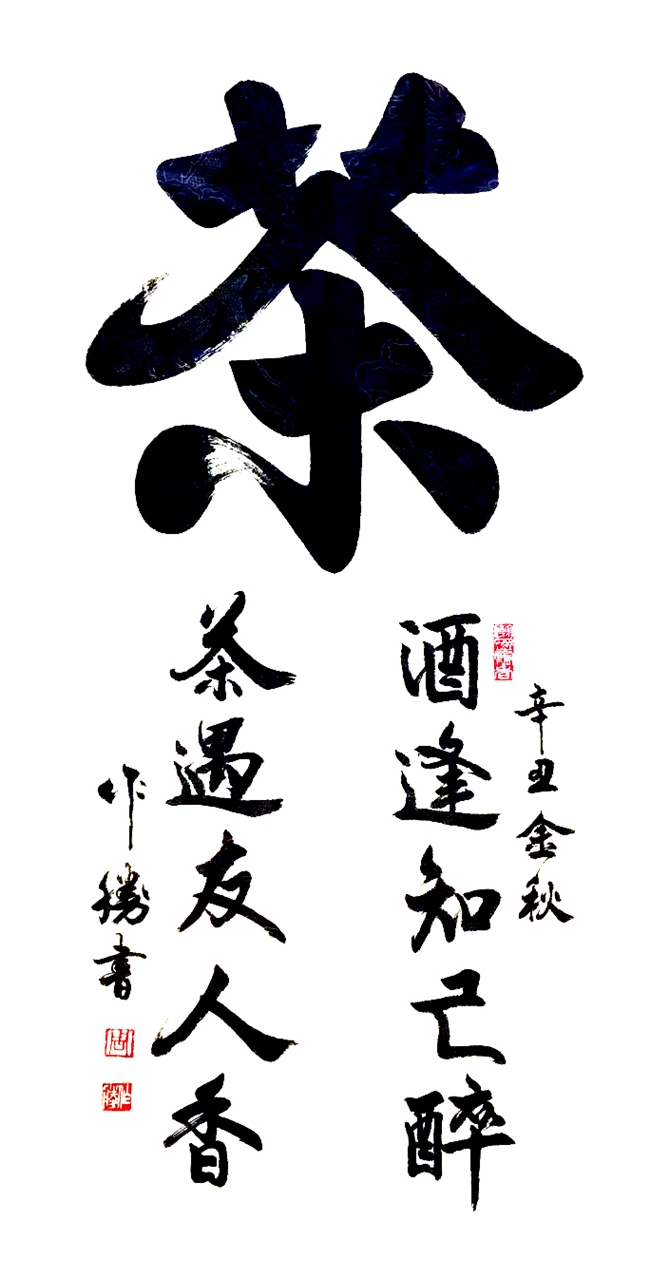 茶
辛丑金秋
酒逢知己醉
茶遇友人香
作勝書